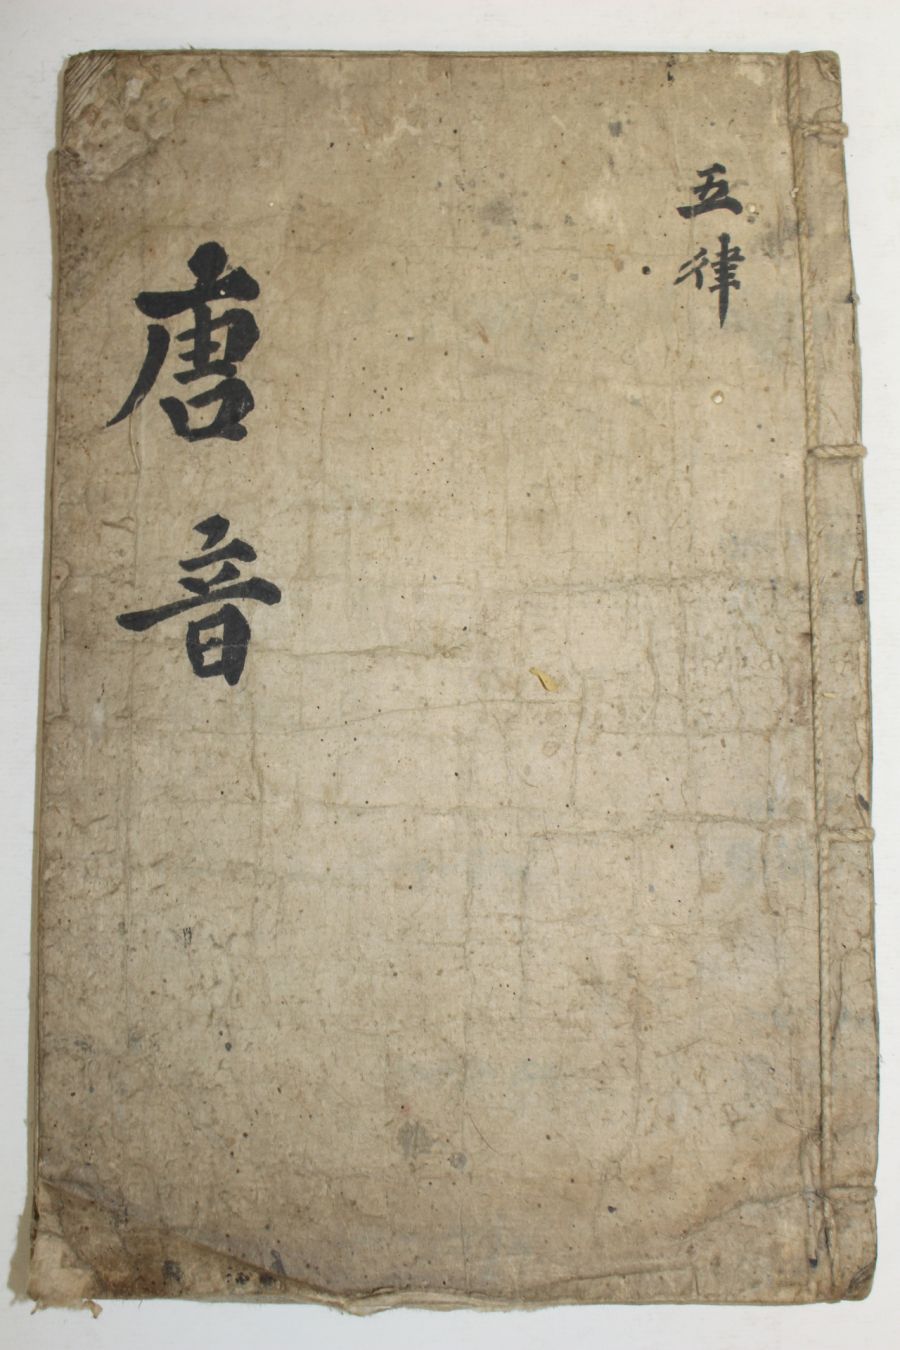 五律
唐音